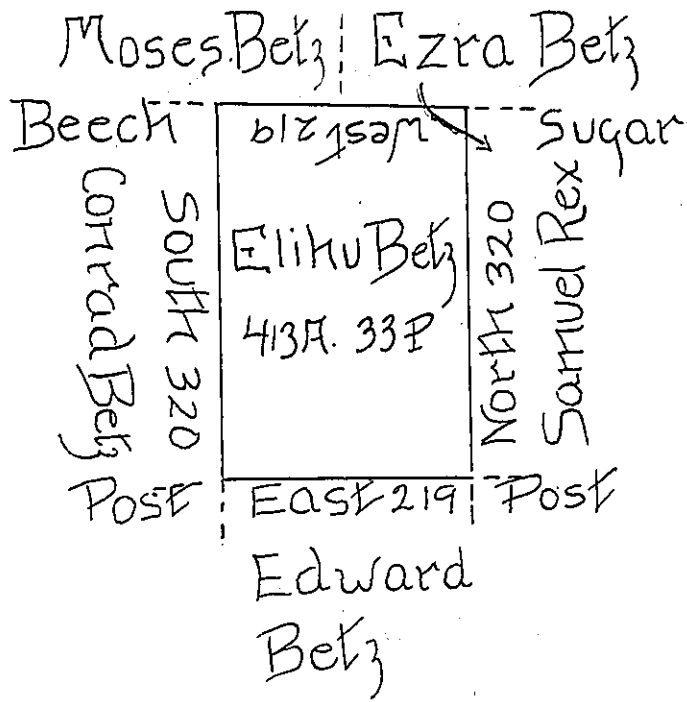 Moses Betz Ezra Betz
Beech West 219 Sugar
Conrad Betz
South 320
Elihu Betz
413A. 33P
North 320
Samuel Rex
Post East 219 Post
Edward
Betz